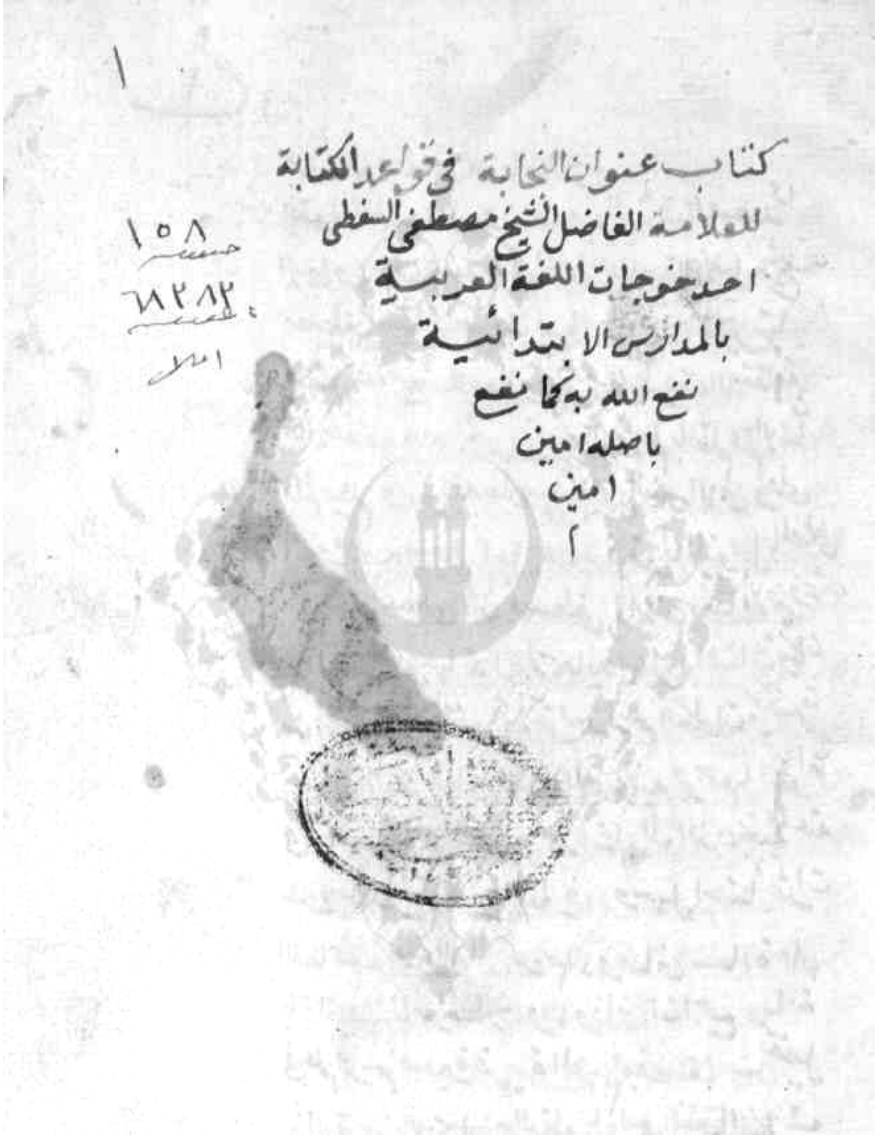 ١
كتاب عنوان النجابة في قواعد الكتابة
للعلامة الفاضل الشيخ مصطفى السفطى
احد خوجات اللغة العربية
بالمدارس الابتدائية
نفع الله به كما نفع
باصله امين
امين
م
١٥٨
خصوصية
٦٨٣٨٣
عمومية
املا